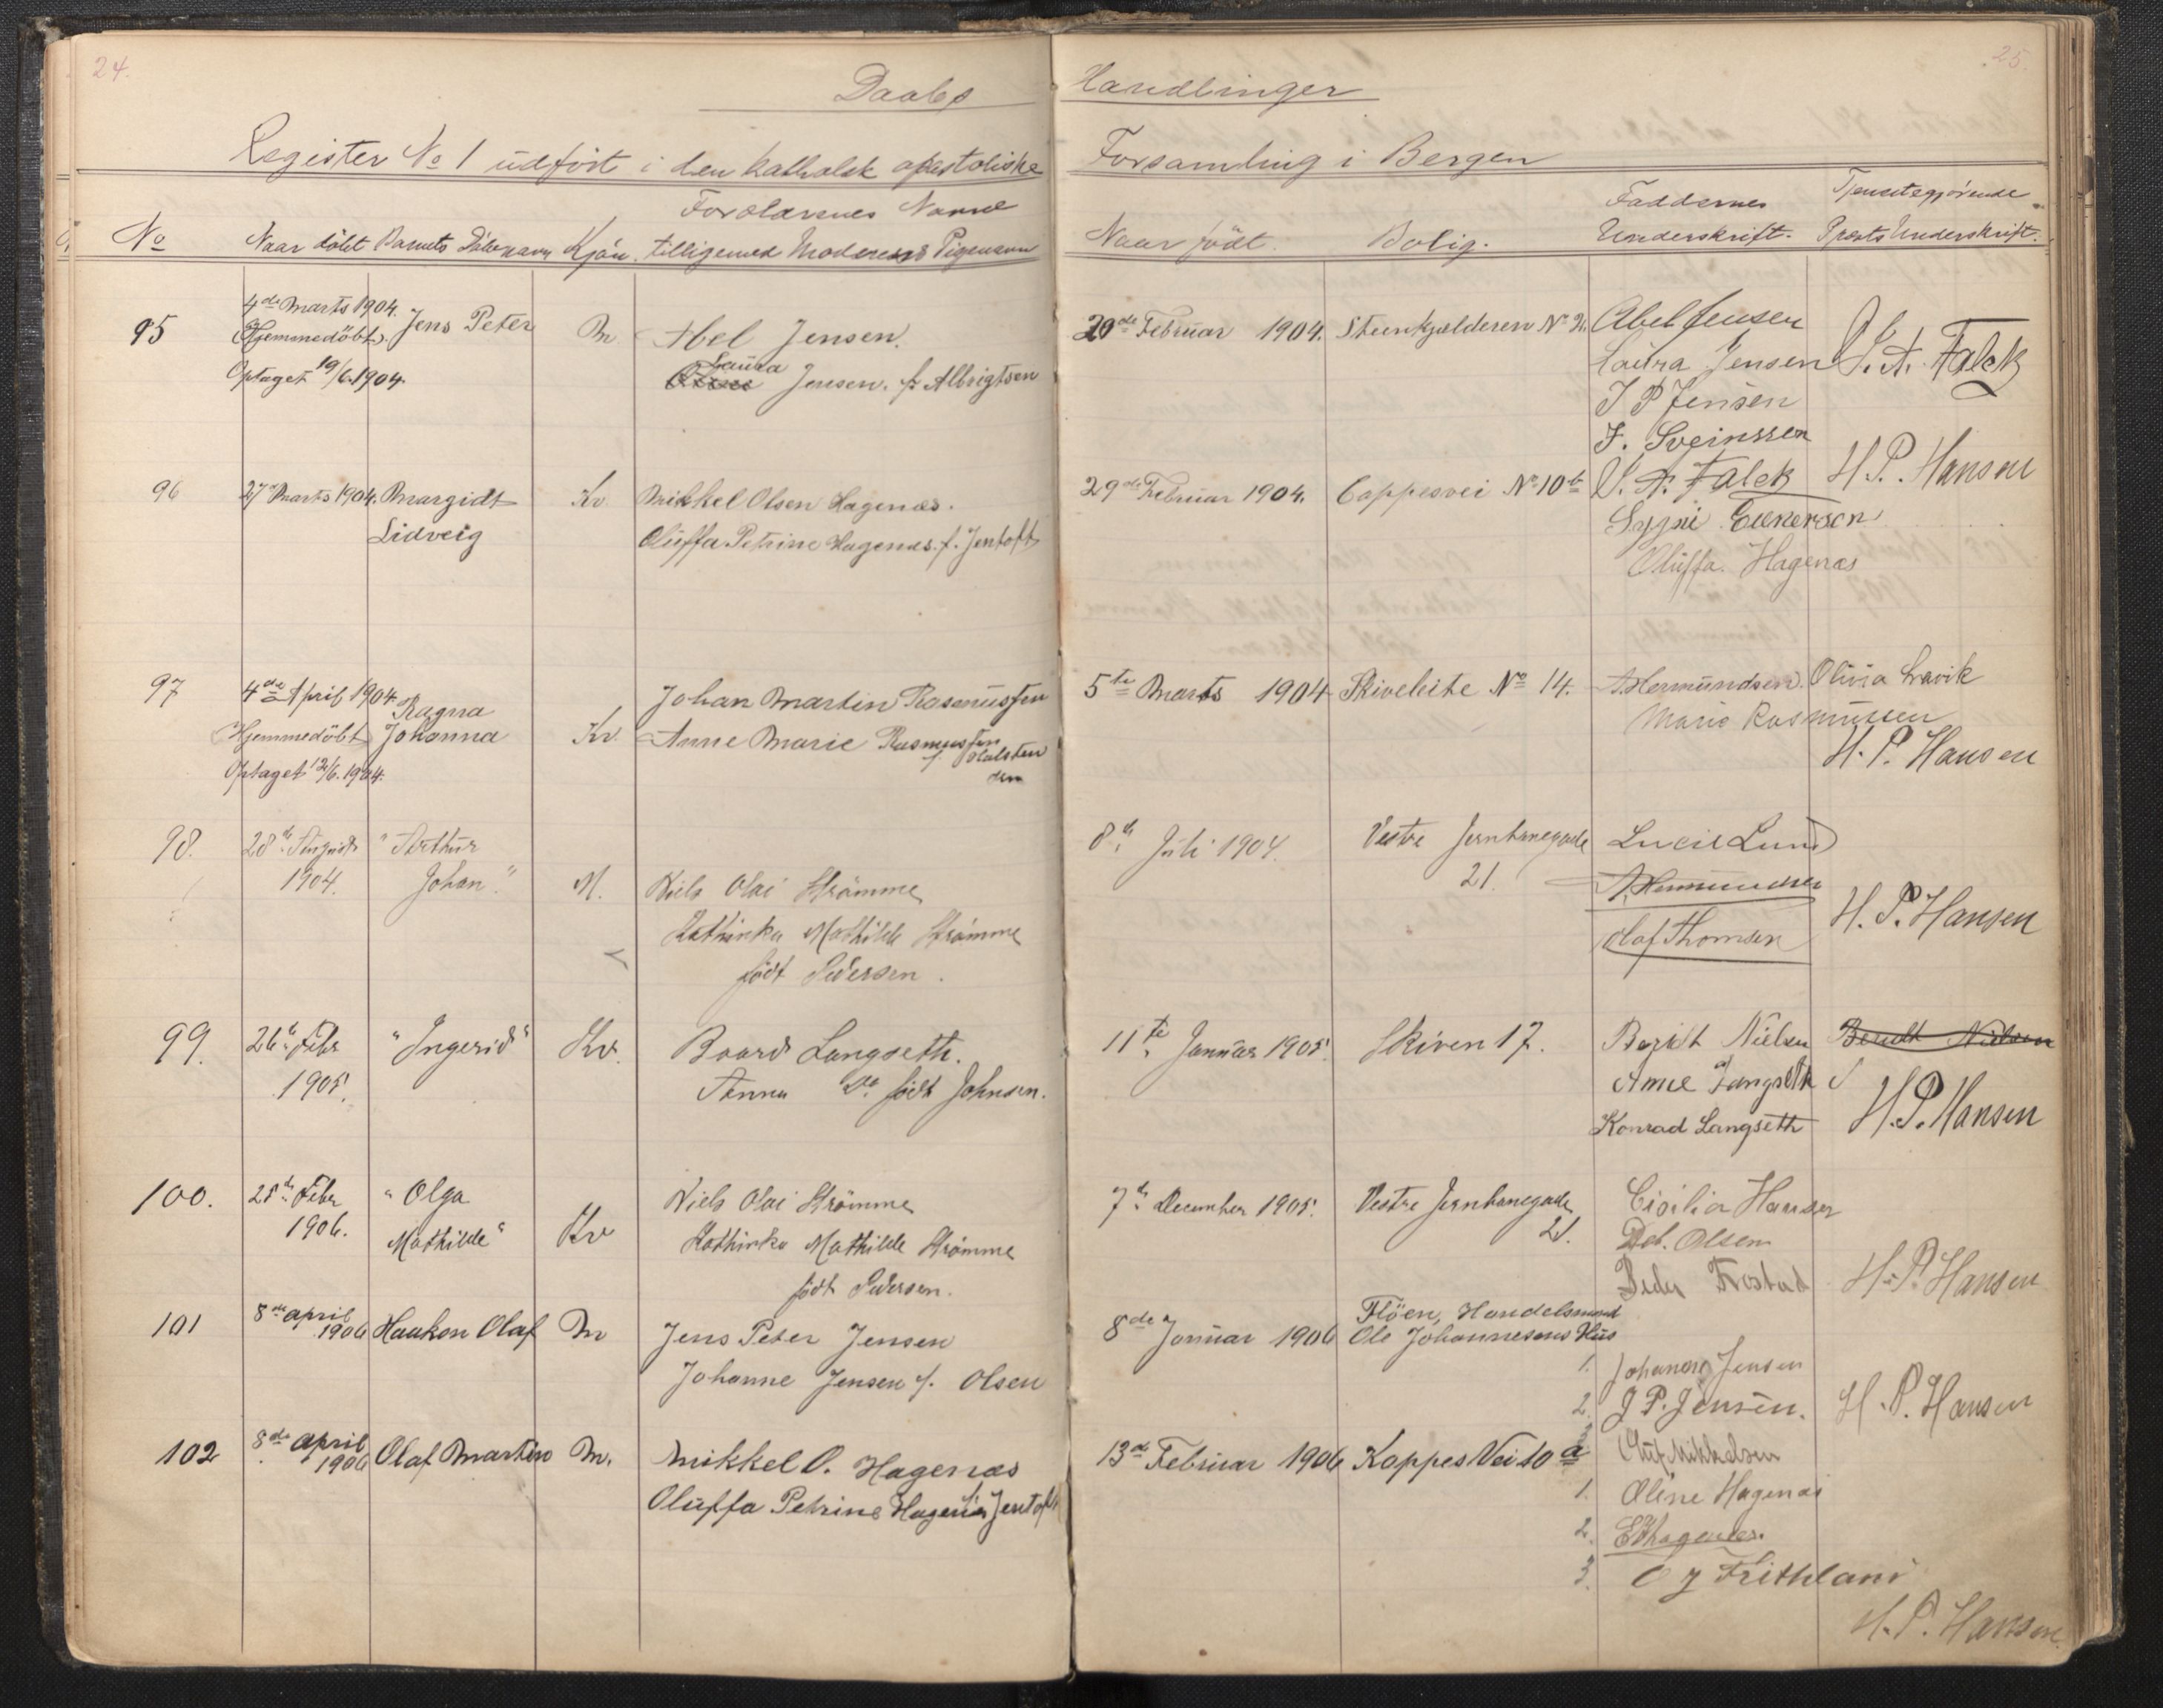 24.
25.
Daabs Handlinger
Register No 1 udført i den katholsk apostoliske Forsamling i Bergen
No
Naar döbt
Barnets Döbenavn
Kjön.
Forældrenes Navne
tilligemed Moderens Pigenavn
Naar födt.
Bolig.
Faddernes
Underskrift.
Tjenstegjörende
Præsts Underskrift.
95
4de Marts 1904.
(Hjemmedöbt).
Optaget 19/6.1904.
Jens Peter
M
Abel Jensen.
Laura
Jensen. f. Albrigtsen
20de Februar 1904.
Steenkjælderen No
Abel Jensen
Laura Jensen
J P Jensen
F. Sveinssen
A. Falck
96
27 Marts 1904.
Margidt
Lidveig
Kv.
Mikkel Olsen Hagenæs.
Oluffa Petrine Hagenæs. f. Jentoft
29de Februar 1904.
Cappesvei No 10b
A. Falck
Sygni
Oluffa. Hagenæs
H. P. Hansen
97
4de April 1904
Hjemmedöbt
Optaget 12/6.1904.
Ragna
Johanna
Kv.
Johan Martin Rasmussen
Anne Marie Rasmussen
f.
5te Marts 1904
Skiveleite No 14.
A Hermundsen.
Olivia Lravik
Marie Rasmussen
H. P. Hansen
98.
28de August
1904.
"Arthur
Johan."
M.
Niels Olai Strömme
Kathinka Mathilde Strömme
födt Pedersen.
8de Juli 1904.
Vestre Jernbanegade
21.
Lucie Lund
A. Hermundsen
Olaf Thomsen
H. P. Hansen
99.
26de Febr
1905.
"Ingerid"
Kv.
Baard Langseth.
Anna Do födt Johnsen.
11te Januar 1905.
Skiven 17.
Berndt Nielsen
Anne Langseth
Konrad Langseth
Berndt Nielsen
H. P. Hansen
100.
25de Febr
1906.
"Olga
Mathilde"
Kv
Niels Olai Strömme
Kathinka Mathilde Strömme
födt Pedersen.
7de December 1905.
Vestre Jernbanegade
21.
Cicilia Hansen
Deb. Olsen
Peder Frostad
H. P. Hansen
101
8de april
1906
Haakon Olaf
M
Jens Peter Jensen
Johanne Jensen f. Olsen
8de Januar 1906
Flöen, Handelsmand
Ole Johannesens Hus
1. Johanne Jensen
2. J P. Jensen.
3. Mikkelsen
H. P. Hansen
102
8de april
1906
Olaf Martin
M.
Mikkel O. Hagenæs
Oluffa Petrine Hagenæs f. Jentoft
13de Februar 1906
Kappes Vei 10 a
1. Oline Hagenæs
2. E Hagenæs.
3. O J Frithland
H. P. Hansen